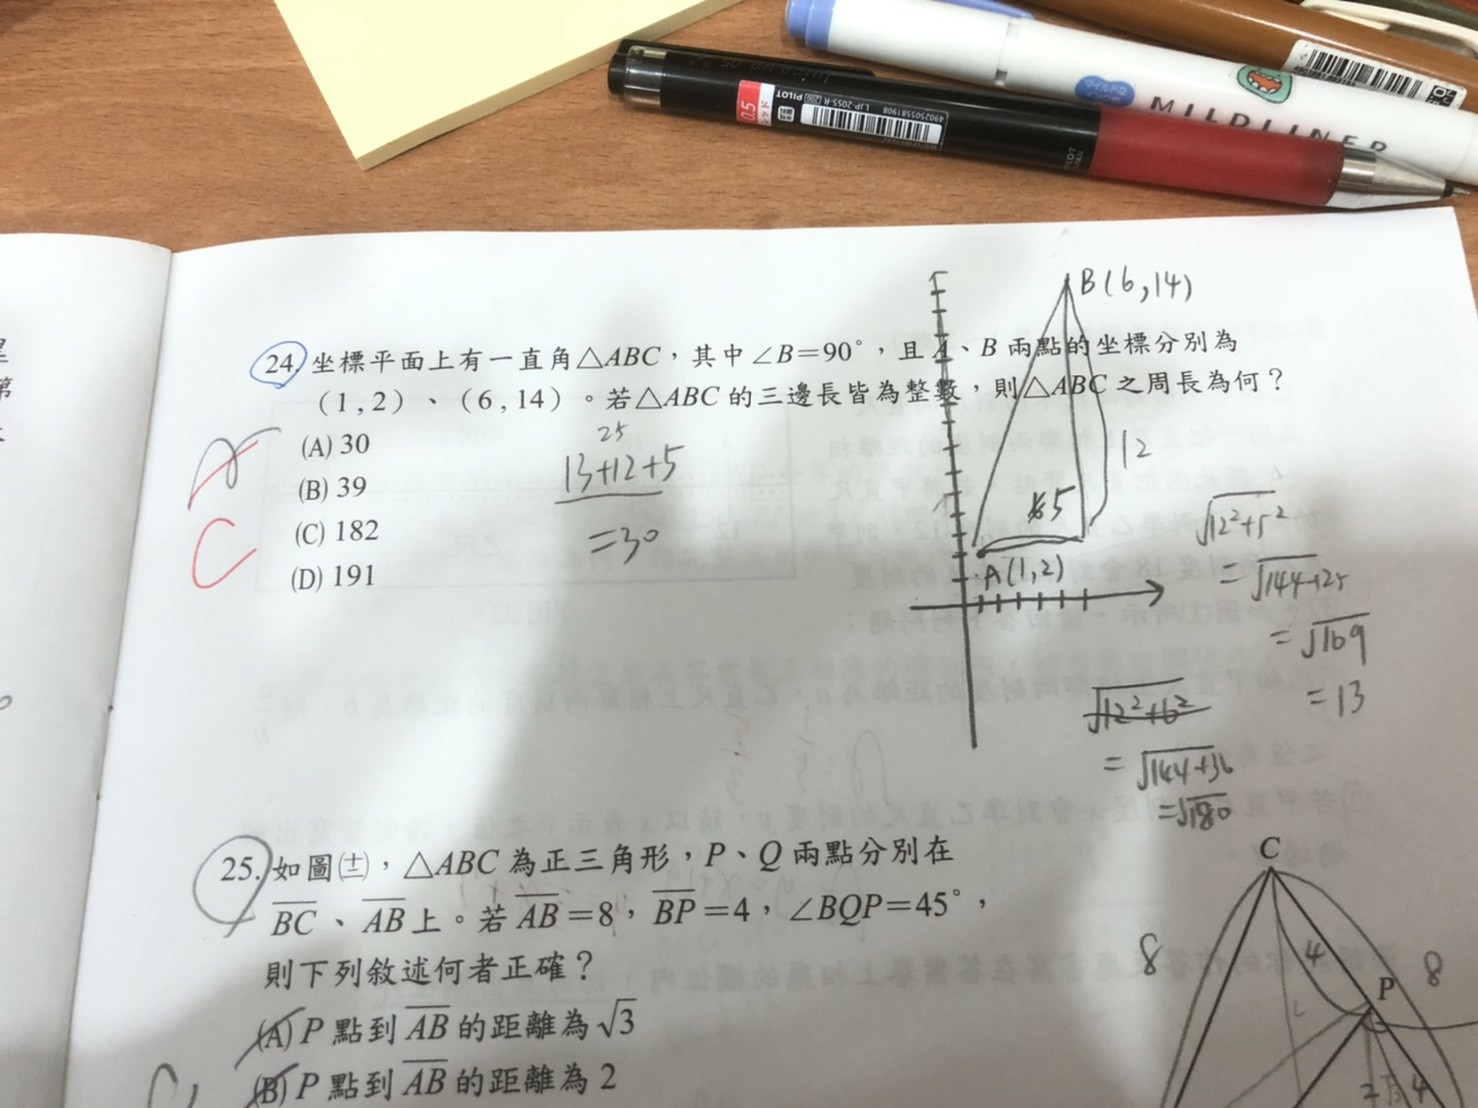 PILOT
0.5
LJP-20S5-R
4902505581908
マイルドな
MILDLINER
B(6,14)
24. 坐標平面上有一直角△ABC，其中∠B=90°，且A、B兩點的坐標分別為
(1,2)、(6,14)。若△ABC的三邊長皆為整數，則△ABC之周長為何？
(A) 30
(B) 39
(C) 182
(D) 191
C
25
13+12+5
=30
12
5
A(1,2)
√12²+5²
=√144+25
=√169
=13
√12²+6²
=√144+36
=√180
25. 如圖(十一)，△ABC為正三角形，P、Q兩點分別在
BC、AB上。若AB=8，BP=4，∠BQP=45°，
則下列敘述何者正確？
(A) P點到AB的距離為√3
(B) P點到AB的距離為2
C
8
4
P
8
4